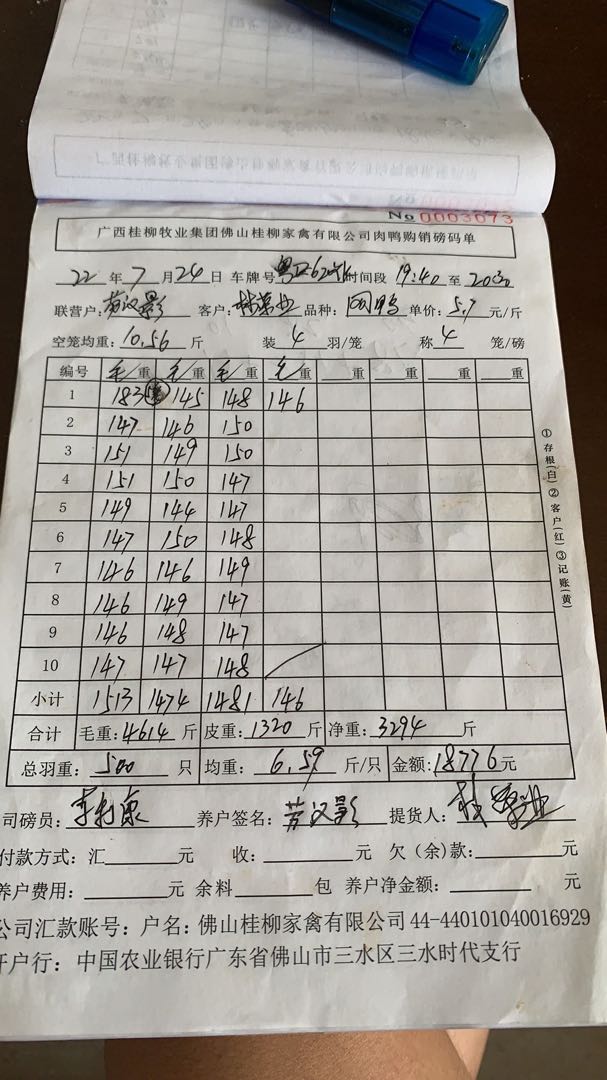 No 0003073
广西桂柳牧业集团佛山桂柳家禽有限公司肉鸭购销磅码单
22年7月24日 车牌号 时间段 19:40 至 2030
联营户: 劳汉影 客户: 品种: 单价: 5.7 元/斤
空笼均重: 10.56 斤 装 4 羽/笼 称 4 笼/磅
编号 毛/重 毛/重 毛/重 毛/重 重 重 重 重
1 183 145 148 146
2 147 146 150
3 151 149 150
4 151 150 147
5 149 144 147
6 147 150 148
7 146 146 149
8 146 149 147
9 146 148 147
10 147 147 148
小计 1513 1474 1481 146
合计 毛重: 4614 斤 皮重: 1320 斤 净重: 3294 斤
总羽重: 500 只 均重: 6.59 斤/只 金额: 18776 元
①存根(白)②客户(红)③记账(黄)
司磅员: 养户签名: 劳汉影 提货人:
付款方式: 汇 元 收: 元 欠(余)款: 元
养户费用: 元 余料 包 养户净金额: 元
公司汇款账号: 户名: 佛山桂柳家禽有限公司 44-440101040016929
开户行: 中国农业银行广东省佛山市三水区三水时代支行